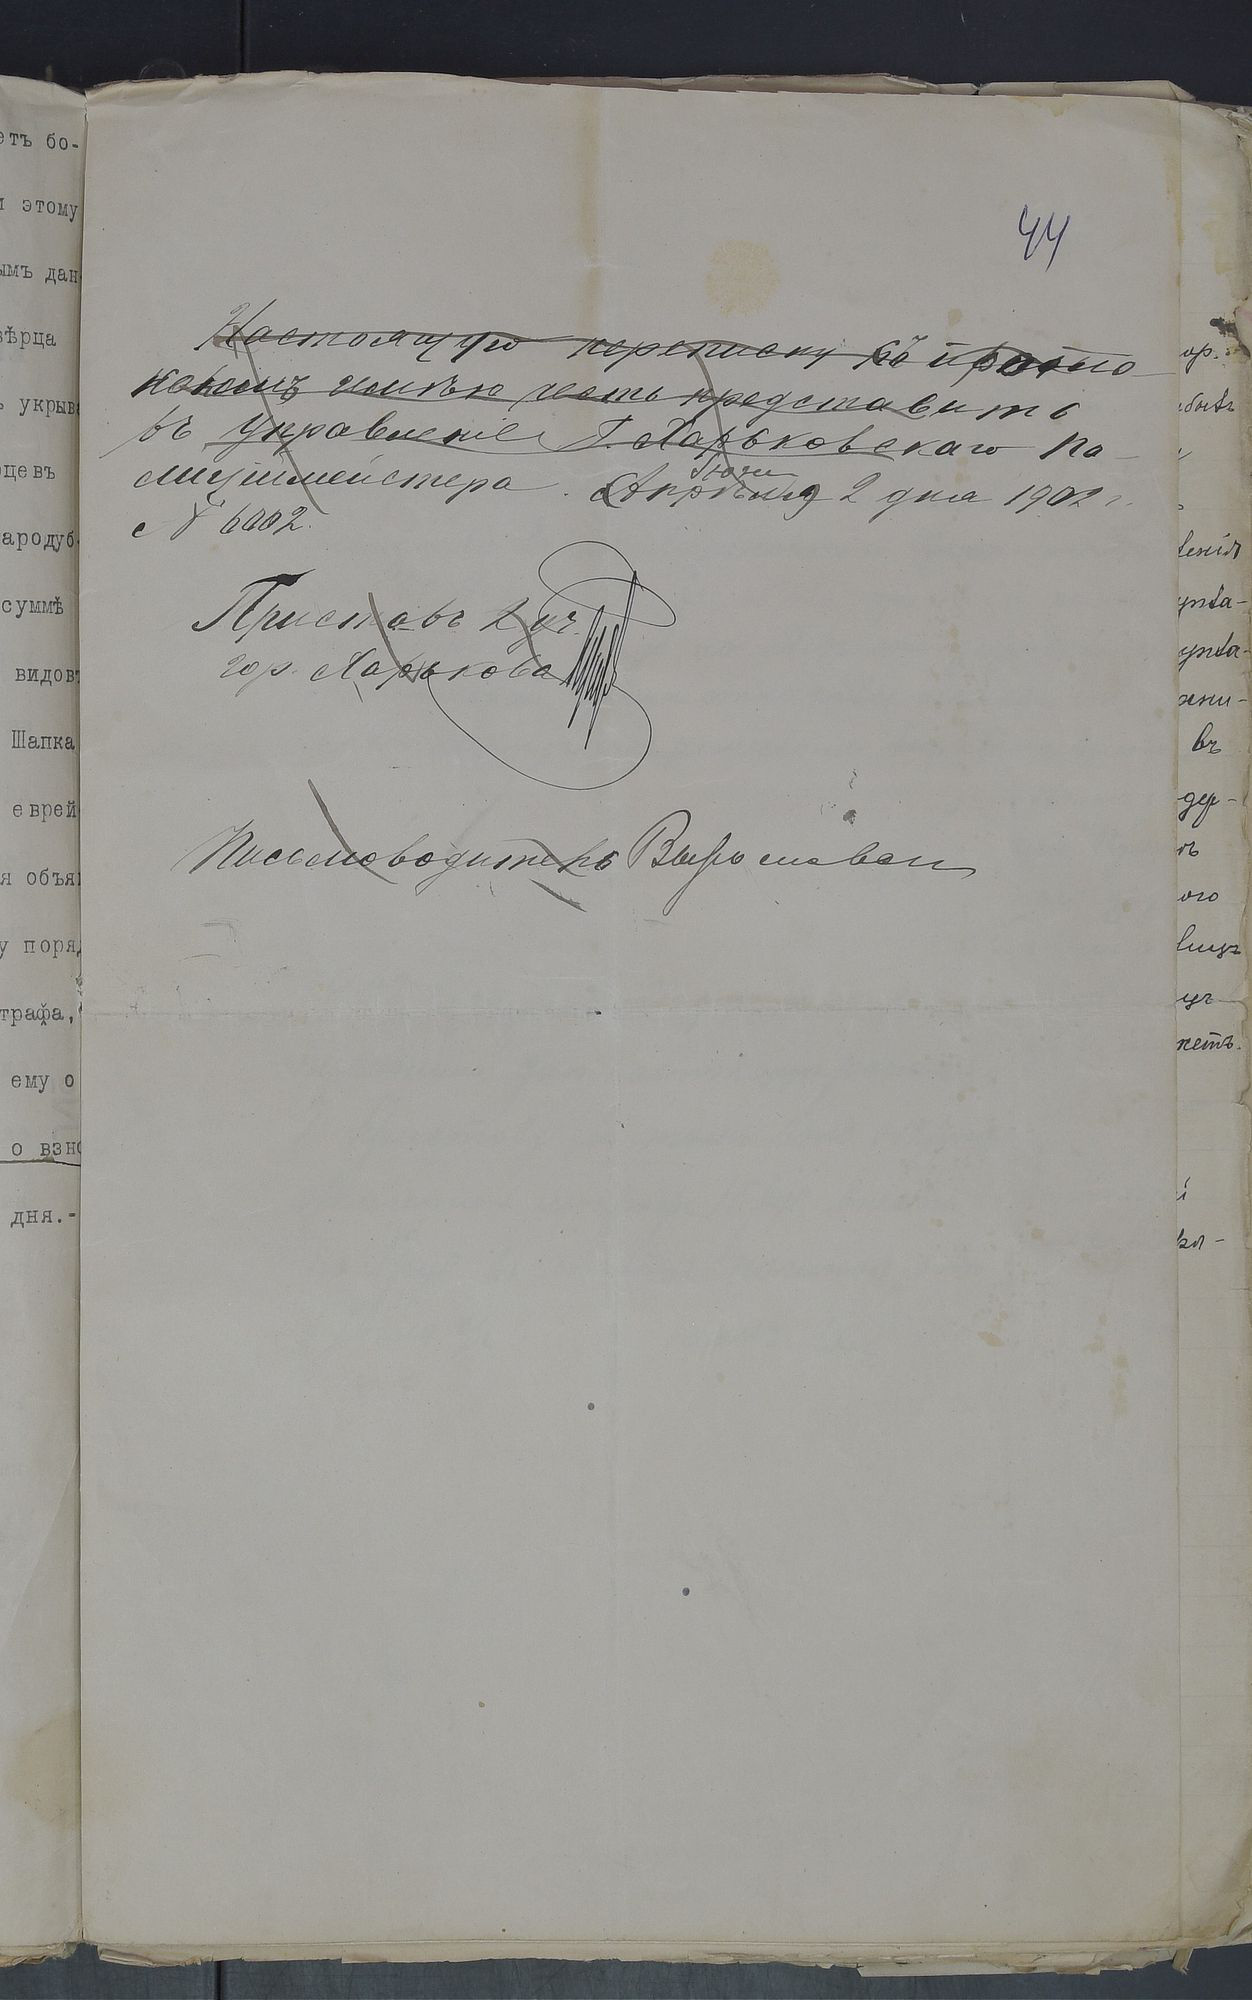 етъ бо-
и этому
ымъ дан
вѣрца
ъ укрыв
рцевъ
тародуб
суммѣ
видовъ
Шапка
еврей
я объяв
у поряд
трафа,
ему о
о взно
дня.-
44
Настоящую переписку съ прото
коломъ имѣю честь представить
въ Управленіе Г. Харьковскаго По-
лиціймейстера. Апрѣля Іюня 2 дня 1902 г.
№ 6002.
Приставъ 2 уч.
гор. Харькова
Письмоводитель
ор.
енія
упла-
упла-
въ
дер-
ого
уг
жетъ.